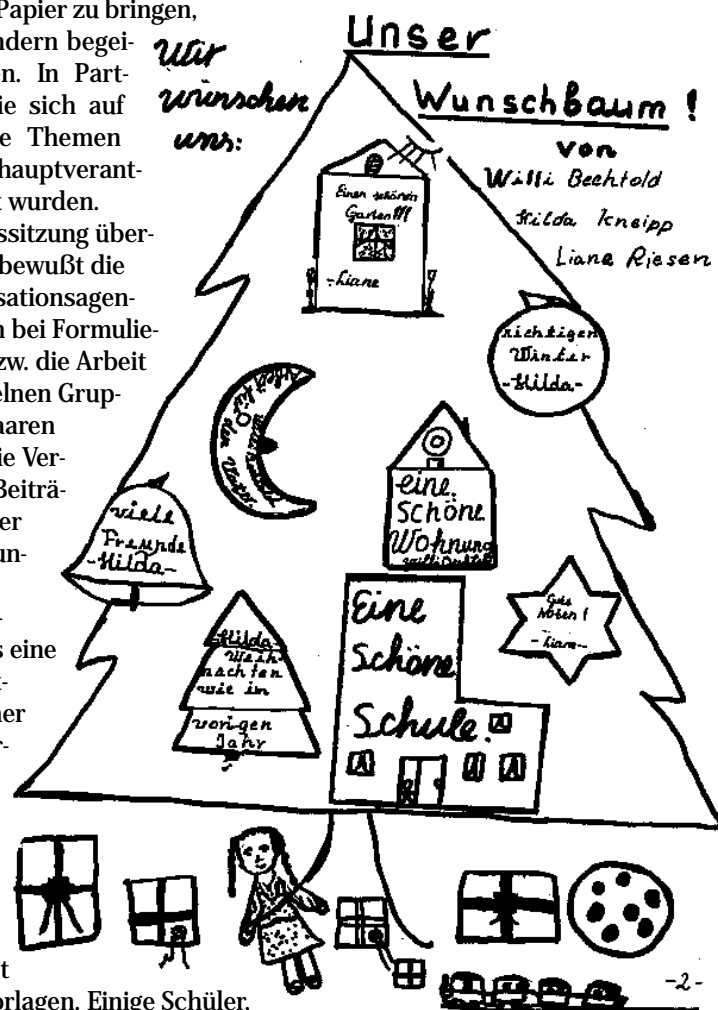 Papier zu bringen,
ndern begei-
en. In Part-
ie sich auf
e Themen
hauptverant-
t wurden.
ssitzung über-
bewußt die
sationsagen-
n bei Formulie-
zw. die Arbeit
elnen Grup-
aaren
ie Ver-
Beiträ-
er
un-
-
s eine
-
ner
r-
t
orlagen. Einige Schüler,
Unser
Wunschbaum !
von
Willi Bechtold
Hilda Kneipp
Liane Riesen
Wir
wünschen
uns:
Einen schönen
Garten!!!
-Liane
richtigen
Winter
-Hilda-
Arbeit
für den Vater
eine
schöne
Wohnung
viele
Freunde
-Hilda-
Gute
Noten!
-Liane-
-Hilda-
Weih-
nachten
wie im
vorigen
Jahr
Eine
Schöne
Schule.
-2-